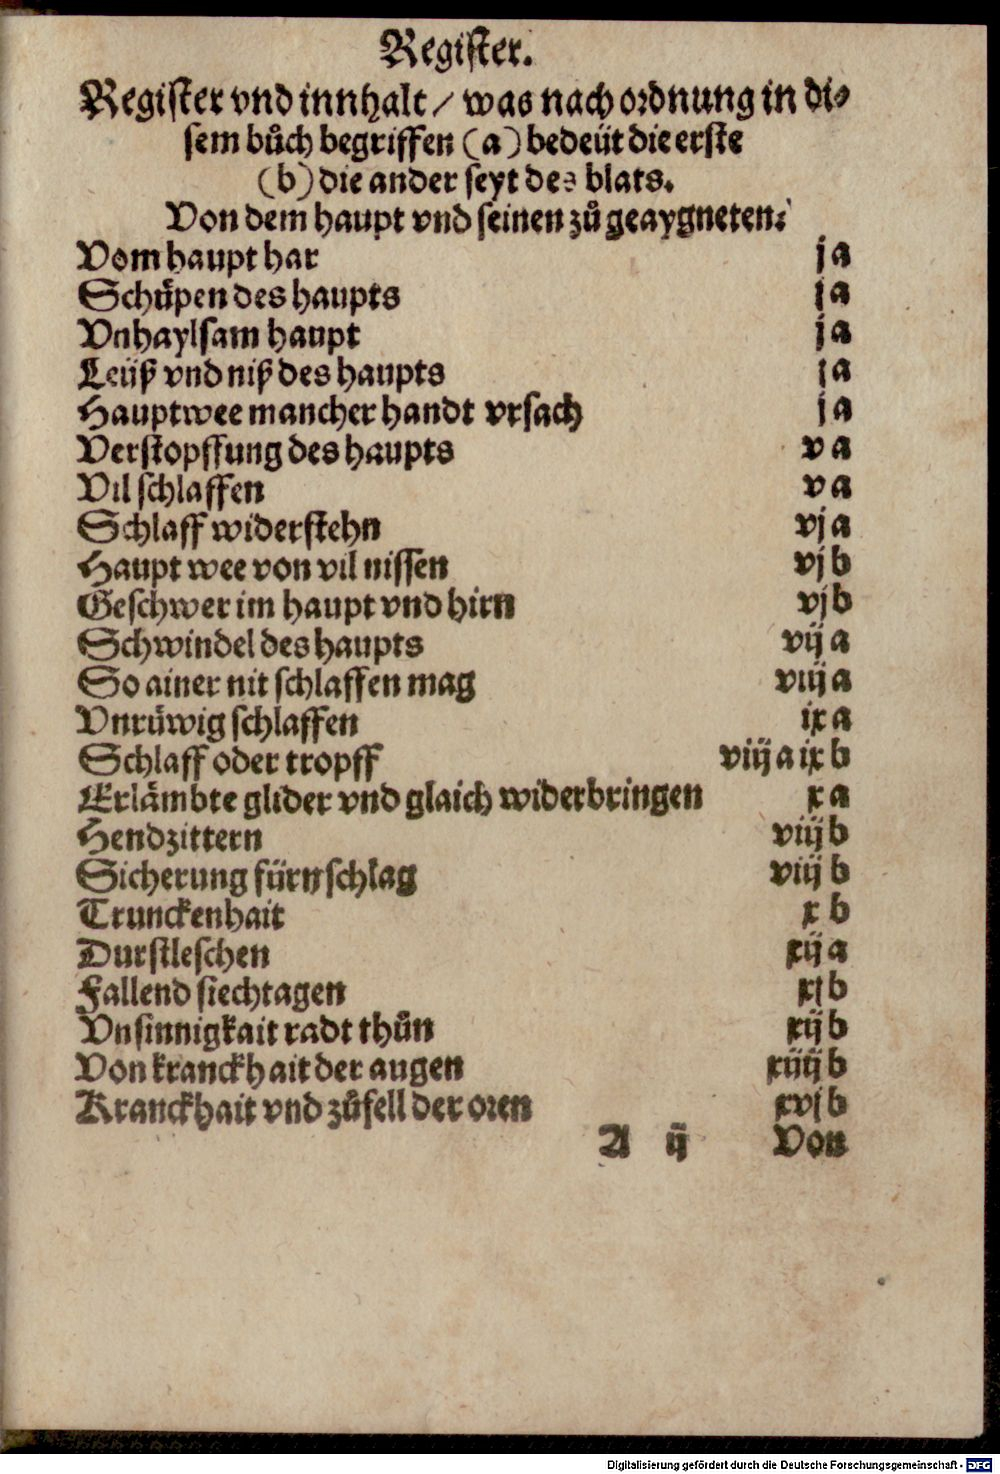 Register.
Register vnd innhalt / was nach ordnung in di⸗
sem bůch begriffen (a) bedeüt die erste
(b) die ander seyt des blats.
Von dem haupt vnd seinen zů geaygneten.
Vom haupt har j a
Schůpen des haupts j a
Vnhaylsam haupt j a
Leüß vnd niß des haupts j a
Hauptwee mancher handt vrsach j a
Verstopffung des haupts v a
Vil schlaffen v a
Schlaff widerstehn vj a
Haupt wee von vil nissen vj b
Geschwer im haupt vnd hirn vj b
Schwindel des haupts vij a
So ainer nit schlaffen mag viij a
Vnrüwig schlaffen ix a
Schlaff oder tropff viij a ix b
Erlämbte glider vnd glaich widerbringen x a
Hendzittern viij b
Sicherung fürn schlag viij b
Trunckenhait x b
Durstleschen xij a
Fallend siechtagen xj b
Vnsinnigkait radt thůn xij b
Von kranckhait der augen xiiij b
Kranckhait vnd zůfell der oren xvj b
A ij Von
Digitalisierung gefördert durch die Deutsche Forschungsgemeinschaft - DFG